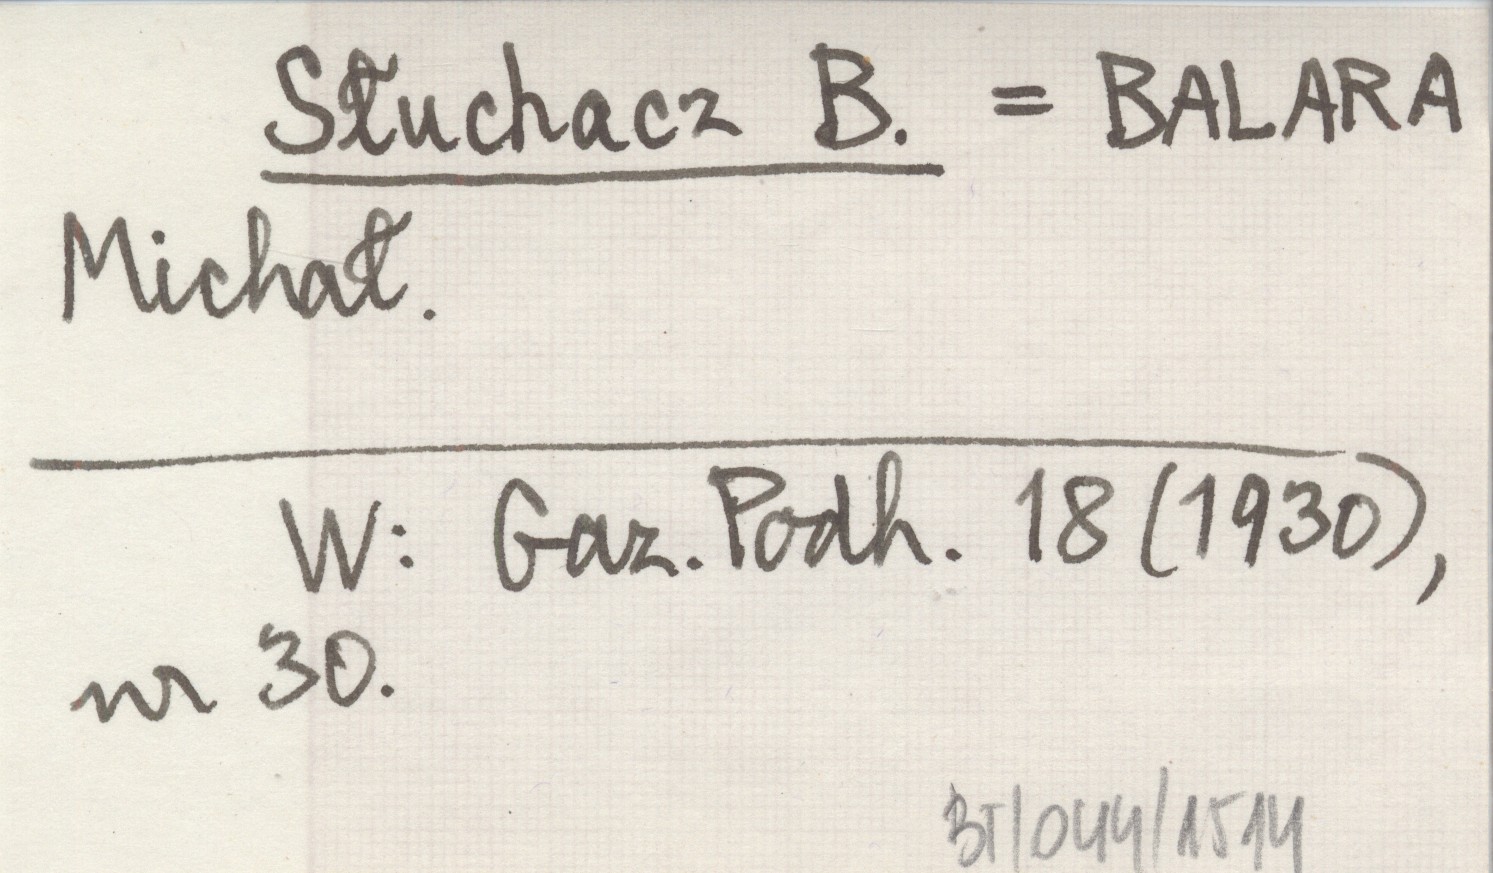 Słuchacz B. = BALARA
Michał.
W: Gaz. Podh. 18 (1930),
nr 30.
BT/044/1514